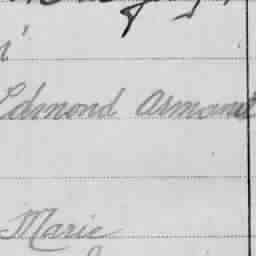 Edmond Armand
Marie